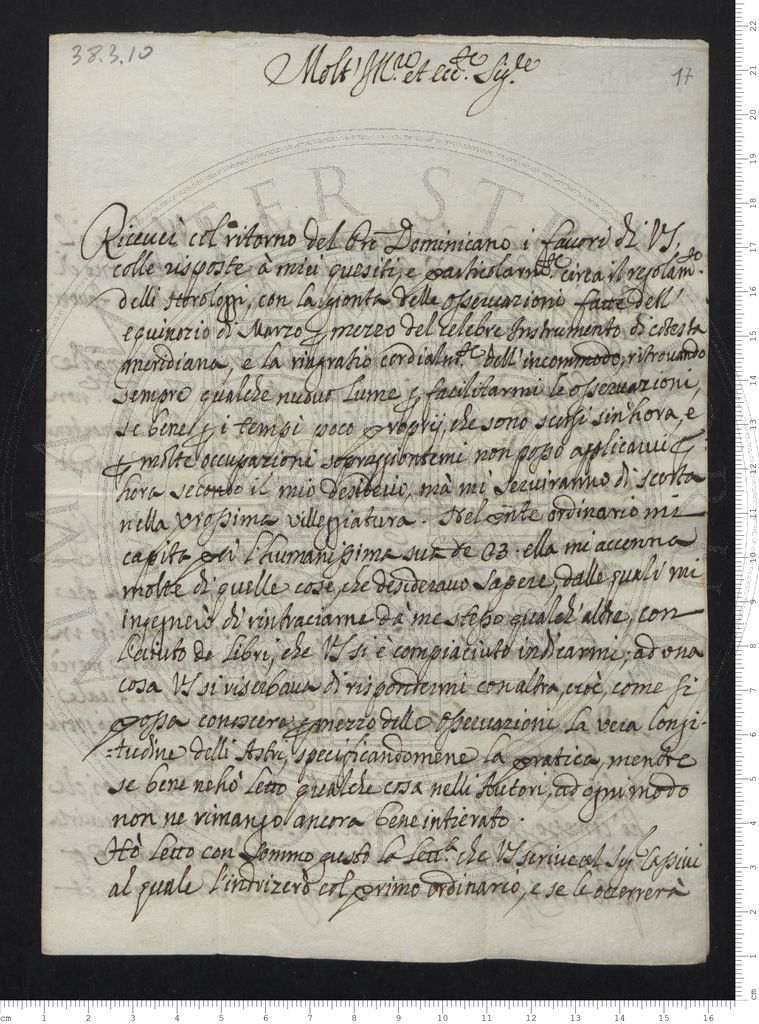 38.3.10
17
Molt' Ill.re et ecc.te Sig.re
Riceuei col ritorno del Pre Dominicano i fauori di VS,
colle risposte à miei quesiti, e particolarm.te circa il regolam.to
delli Horologgi, con la gionta della osseruazione fatta dell'
equinozio di Marzo p mezzo del celebre Instrumento di cotesta
meridiana, e la ringratio cordialm.te dell'incommodo, ritrouando
sempre qualche nuouo lume p facilitarmi le osseruazioni,
se bene p i tempi poco proprij, che sono scorsi sin hora, e
p molte occupazioni sopragiontemi non posso applicarui p
hora secondo il mio desiderio, mà mi seruiranno di scorta
nella prossima villeggiatura. Nel pnte ordinario mi
capita poi l'humanissima sua de 03. ella mi accenna
molte di quelle cose, che desiderauo sapere, dalle quali mi
ingegnerò di rintraciarne dà me stesso qualch'altre, con
l'aiuto de Libri, che VS si è compiaciuto indicarmi; ad una
cosa VS si riserbaua di rispondermi con altra, cioè, come si
possa conoscere p mezzo delle osseruazioni la vera longi-
=tudine delli Astri, specificandomene la pratica, mentre
se bene nehò letto qualche cosa nelli Autori, ad ogni modo
non ne rimango ancora bene intierato.
Hò letto con sommo gusto la Lett.a che VS scriue al Sig.r Cassini
al quale l'indrizerò col primo ordinario, e se le occorrerà